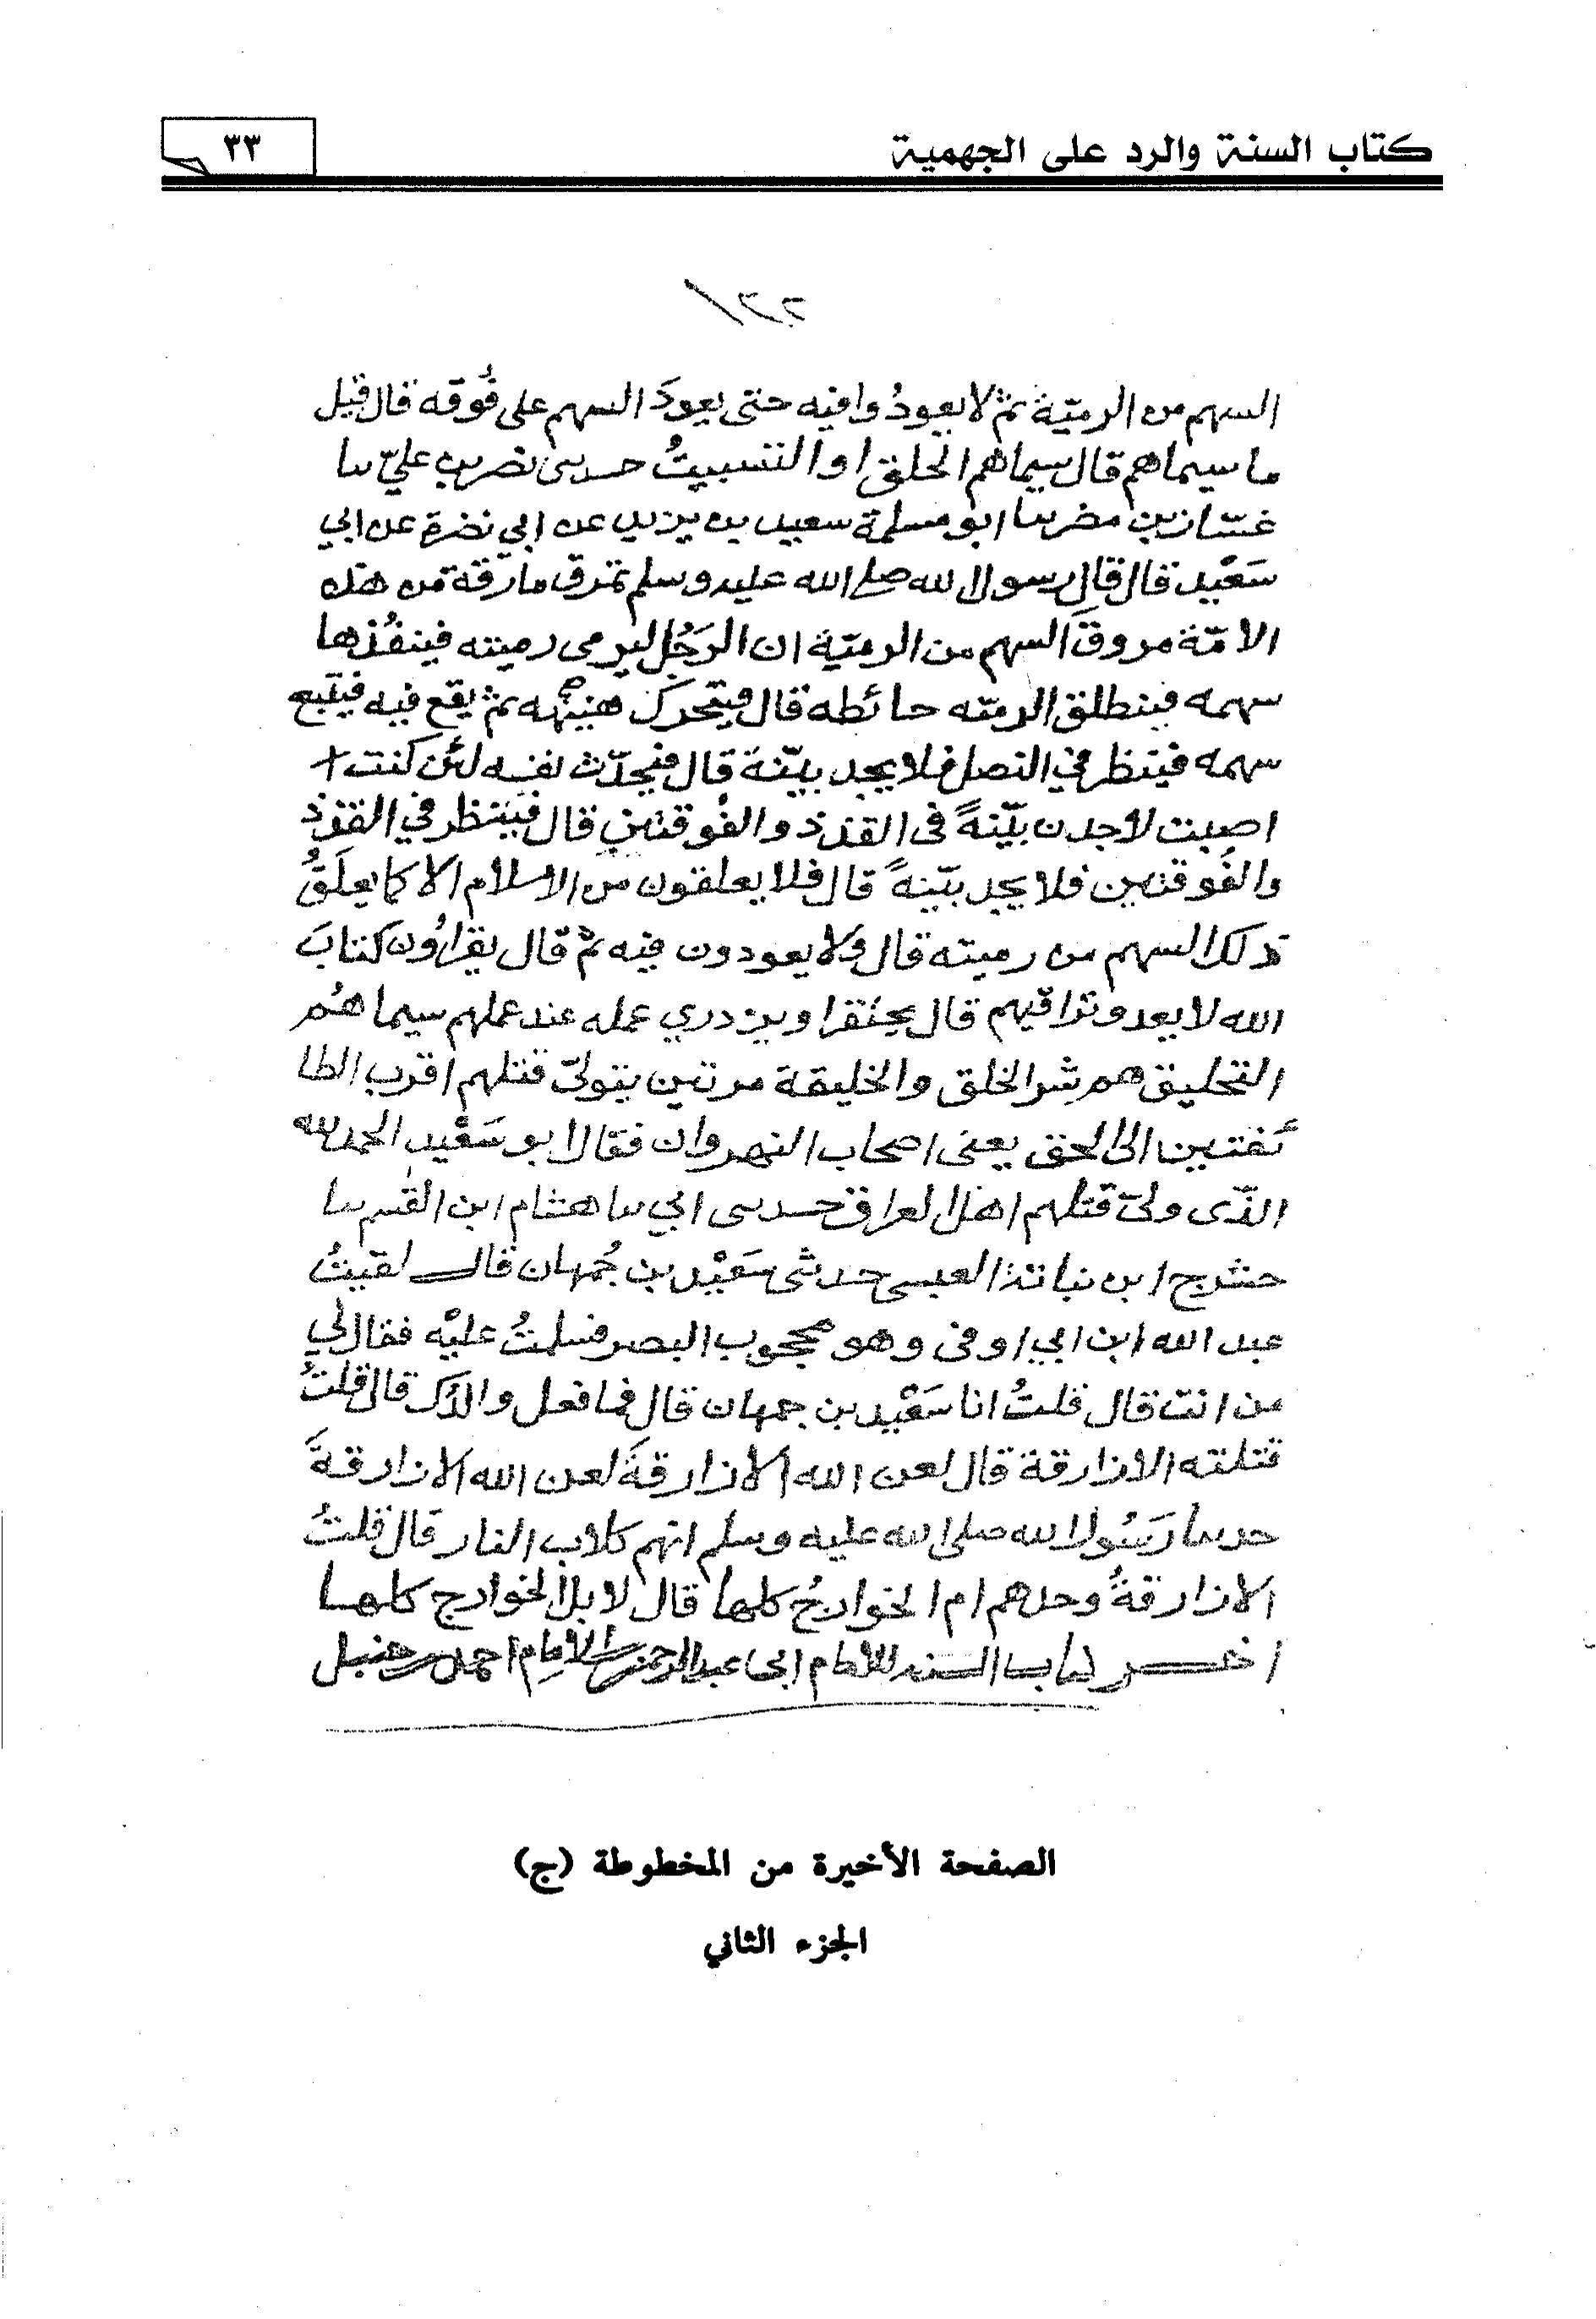 كتاب السنة والرد على الجهمية
٣٣
السهم من الرميّة ثم لا يعودُوا فيه حتى يعودَ السهم على فُوقه قال قيل
ما سيماهم قال سيماهم الحلق او التسبيتُ حدثنى نصر بن عليّ نا
غسّان بن مضر نا ابو مسلمة سعيد بن يزيد عن ابي نضرة عن ابي
سَعْيد قال قال رسول الله صلى الله عليه وسلم تمرق مارقة من هذه
الامّة مروقَ السهم من الرميّة ان الرَجُل ليرمى رميته فينفُذها
سهمه فينطلق الرميّه حائطه قال فيتحرك هنيهه ثم يقع فيه فيتّبع
سهمه فينظر في النصل فلا يجد بيّنة قال فيحدّث نفسه لئن كنت
اصبت لاجدن بيّنةً فى القذذ والفُوقتين قال فينظر في القذذ
والفُوقتين فلا يجد بيّنةً قال فلا يعلقون من الاسلام الا كما يعلَقُ
ذلك السهم من رميته قال ولا يعودون فيه ثم قال يقرأون كتابَ
الله لا يعدو تراقيهم قال يحتقر او يزدري عمله عند عملهم سيماهُم
التحليق هم شر الخلق والخليقة مرتين يتولىّ قتلهم اقرب الطا
ئفتين الى الحق يعنى اصحاب النهروان فقال ابو سَعْيد الحمد لله
الذّى ولىّ قتلهم اهل العراق حدثنى ابي نا هشام ابن القسم نا
حشرج ابن نباتة العبسى حدثنى سَعْيد بن جُمهان قال لقيتُ
عبد الله ابن ابي اوفى وهو محجوب البصر فسلمتُ عليْه فقال لي
من انت قال قلتُ انا سَعْيد بن جمهان قال فما فعل والدُك قال قلتُ
قتلته الازارقة قال لعن الله الازارقةَ لعن الله الازارقةَ
حدثنا رَسُول الله صلى الله عليه وسلم انهم كلاب النار قال قلتُ
الازارقةُ وحدهم ام الخوارجُ كلها قال لا بل الخوارج كلها
اخر كتاب السنه للامام ابى عبد الرحمن بن الامام احمد بن حنبل
الصفحة الأخيرة من المخطوطة (ج)
الجزء الثاني